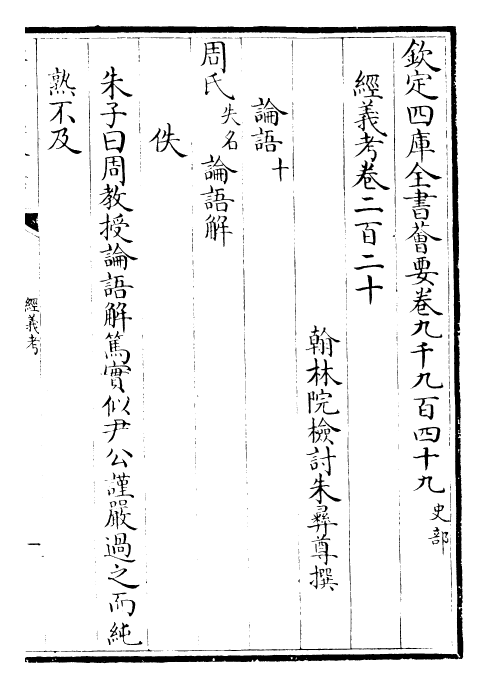 欽定四庫全書薈要卷九千九百四十九 史部
經義考卷二百二十
翰林院檢討朱彝尊撰
論語十
周氏失名論語解
佚
朱子曰周教授論語解篤實似尹公謹嚴過之而純
熟不及
經義考
一